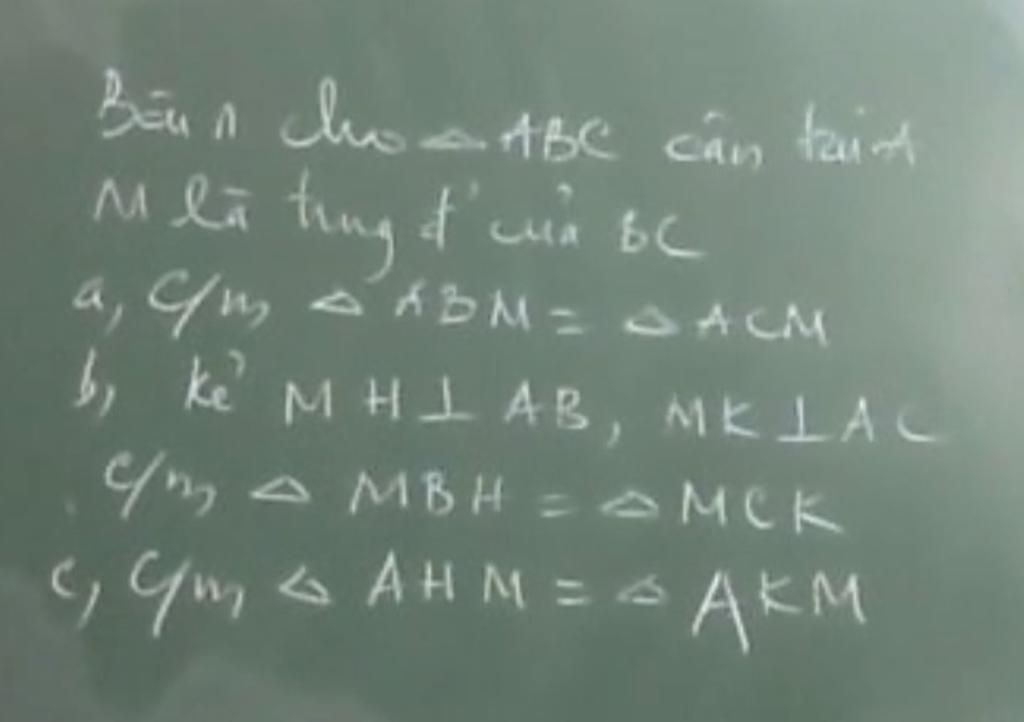 Bài 1 cho △ABC cân tại A
M là trung đ' của BC
a, C/m △ ABM = △ ACM
b, kẻ MH⊥ AB, MK⊥AC
C/m △ MBH = △ MCK
c, C/m △ AHM = △ AKM